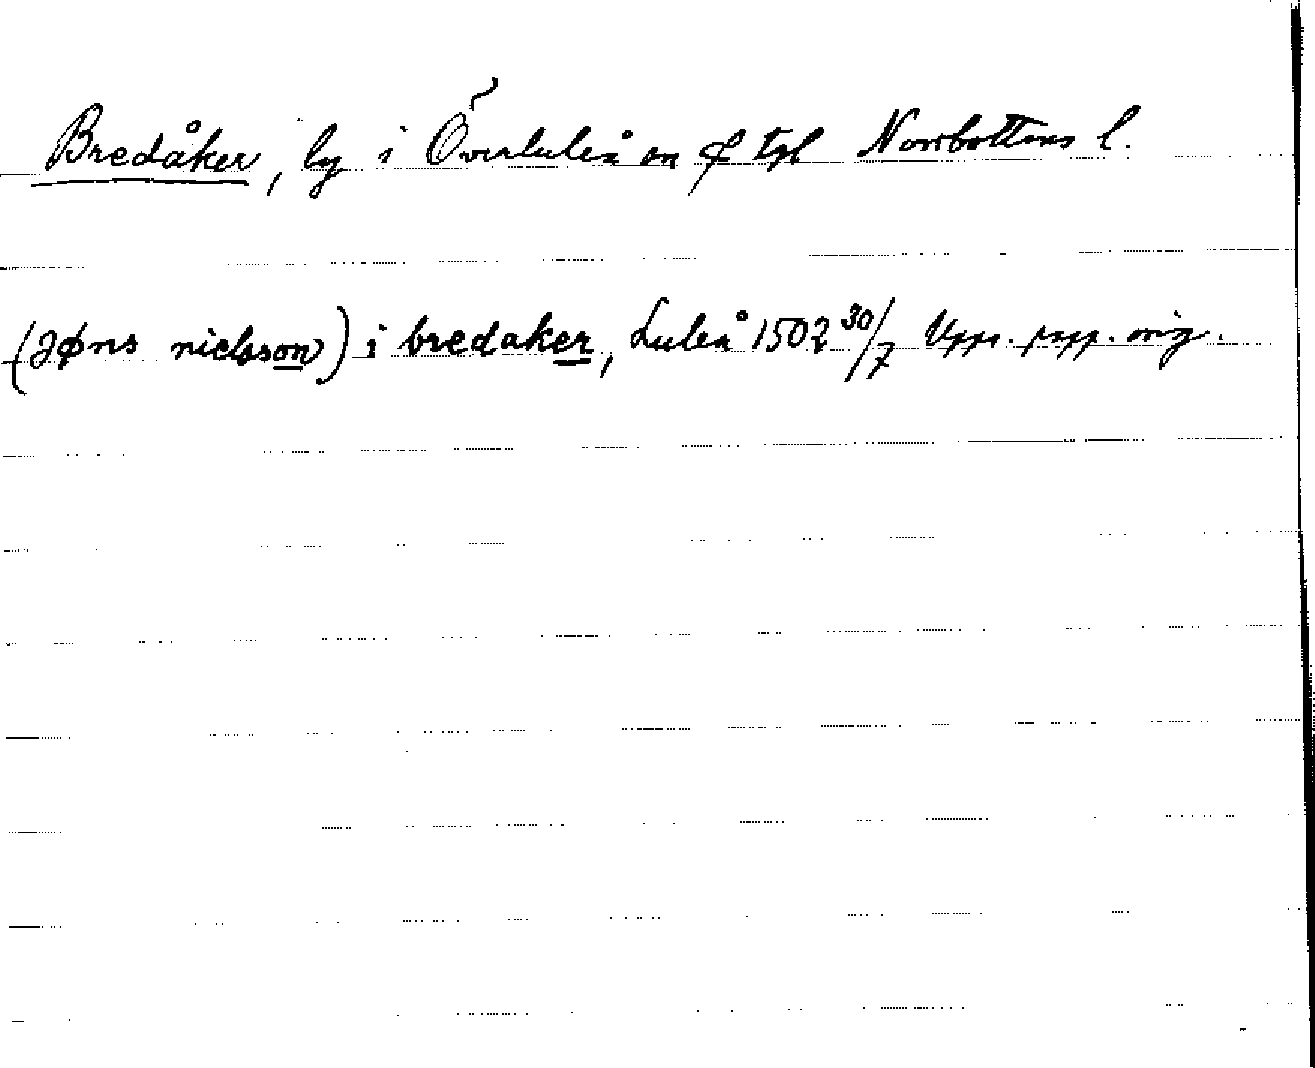 Bredåker, by i Överluleå sn o tgl Norrbottens l.
(Jøns nielsson) i bredaker, Luleå 1502 30/7 Upps. papp. orig.